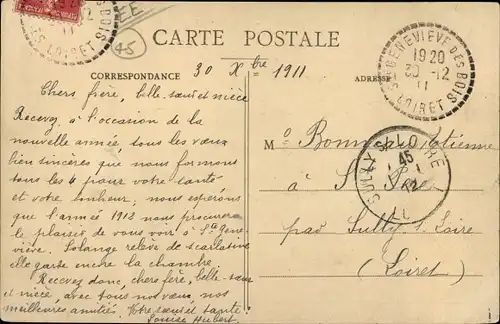 EE
45
CARTE POSTALE
CORRESPONDANCE
ADRESSE
30 Xbre 1911
Chers frère, belle-sœur et nièce
Recevez à l'occasion de la
nouvelle année tous les vœux
bien sincères que nous formons
tous les 4 pour votre santé
et votre bonheur; nous espérons
que l'année 1912 nous procurera
le plaisir de vous voir à Ste Gene-
viève. Solange relève de scarlatine
elle garde encore la chambre.
Recevez donc, chers frère, belle-sœur
et nièce, avec tous nos vœux, nos
meilleures amitiés. Votre sœur et tante
Louise Hubert
STE GENEVIEVE DES BOIS
1920
30-12
11
LOIRET
Mr Etienne
à St Père
par Sully s. Loire
(Loiret)
SULLY S. LOIRE
45
12
LOIRET